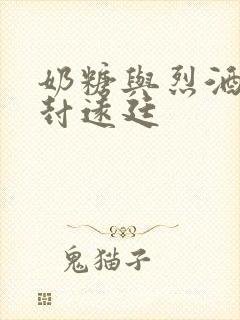 奶糖與烈酒
封遠廷
鬼猫子